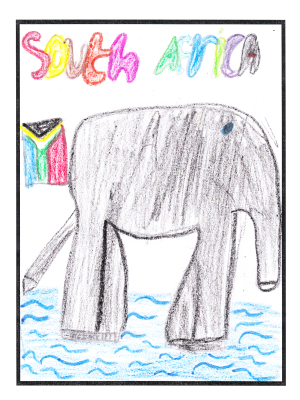 South Africa